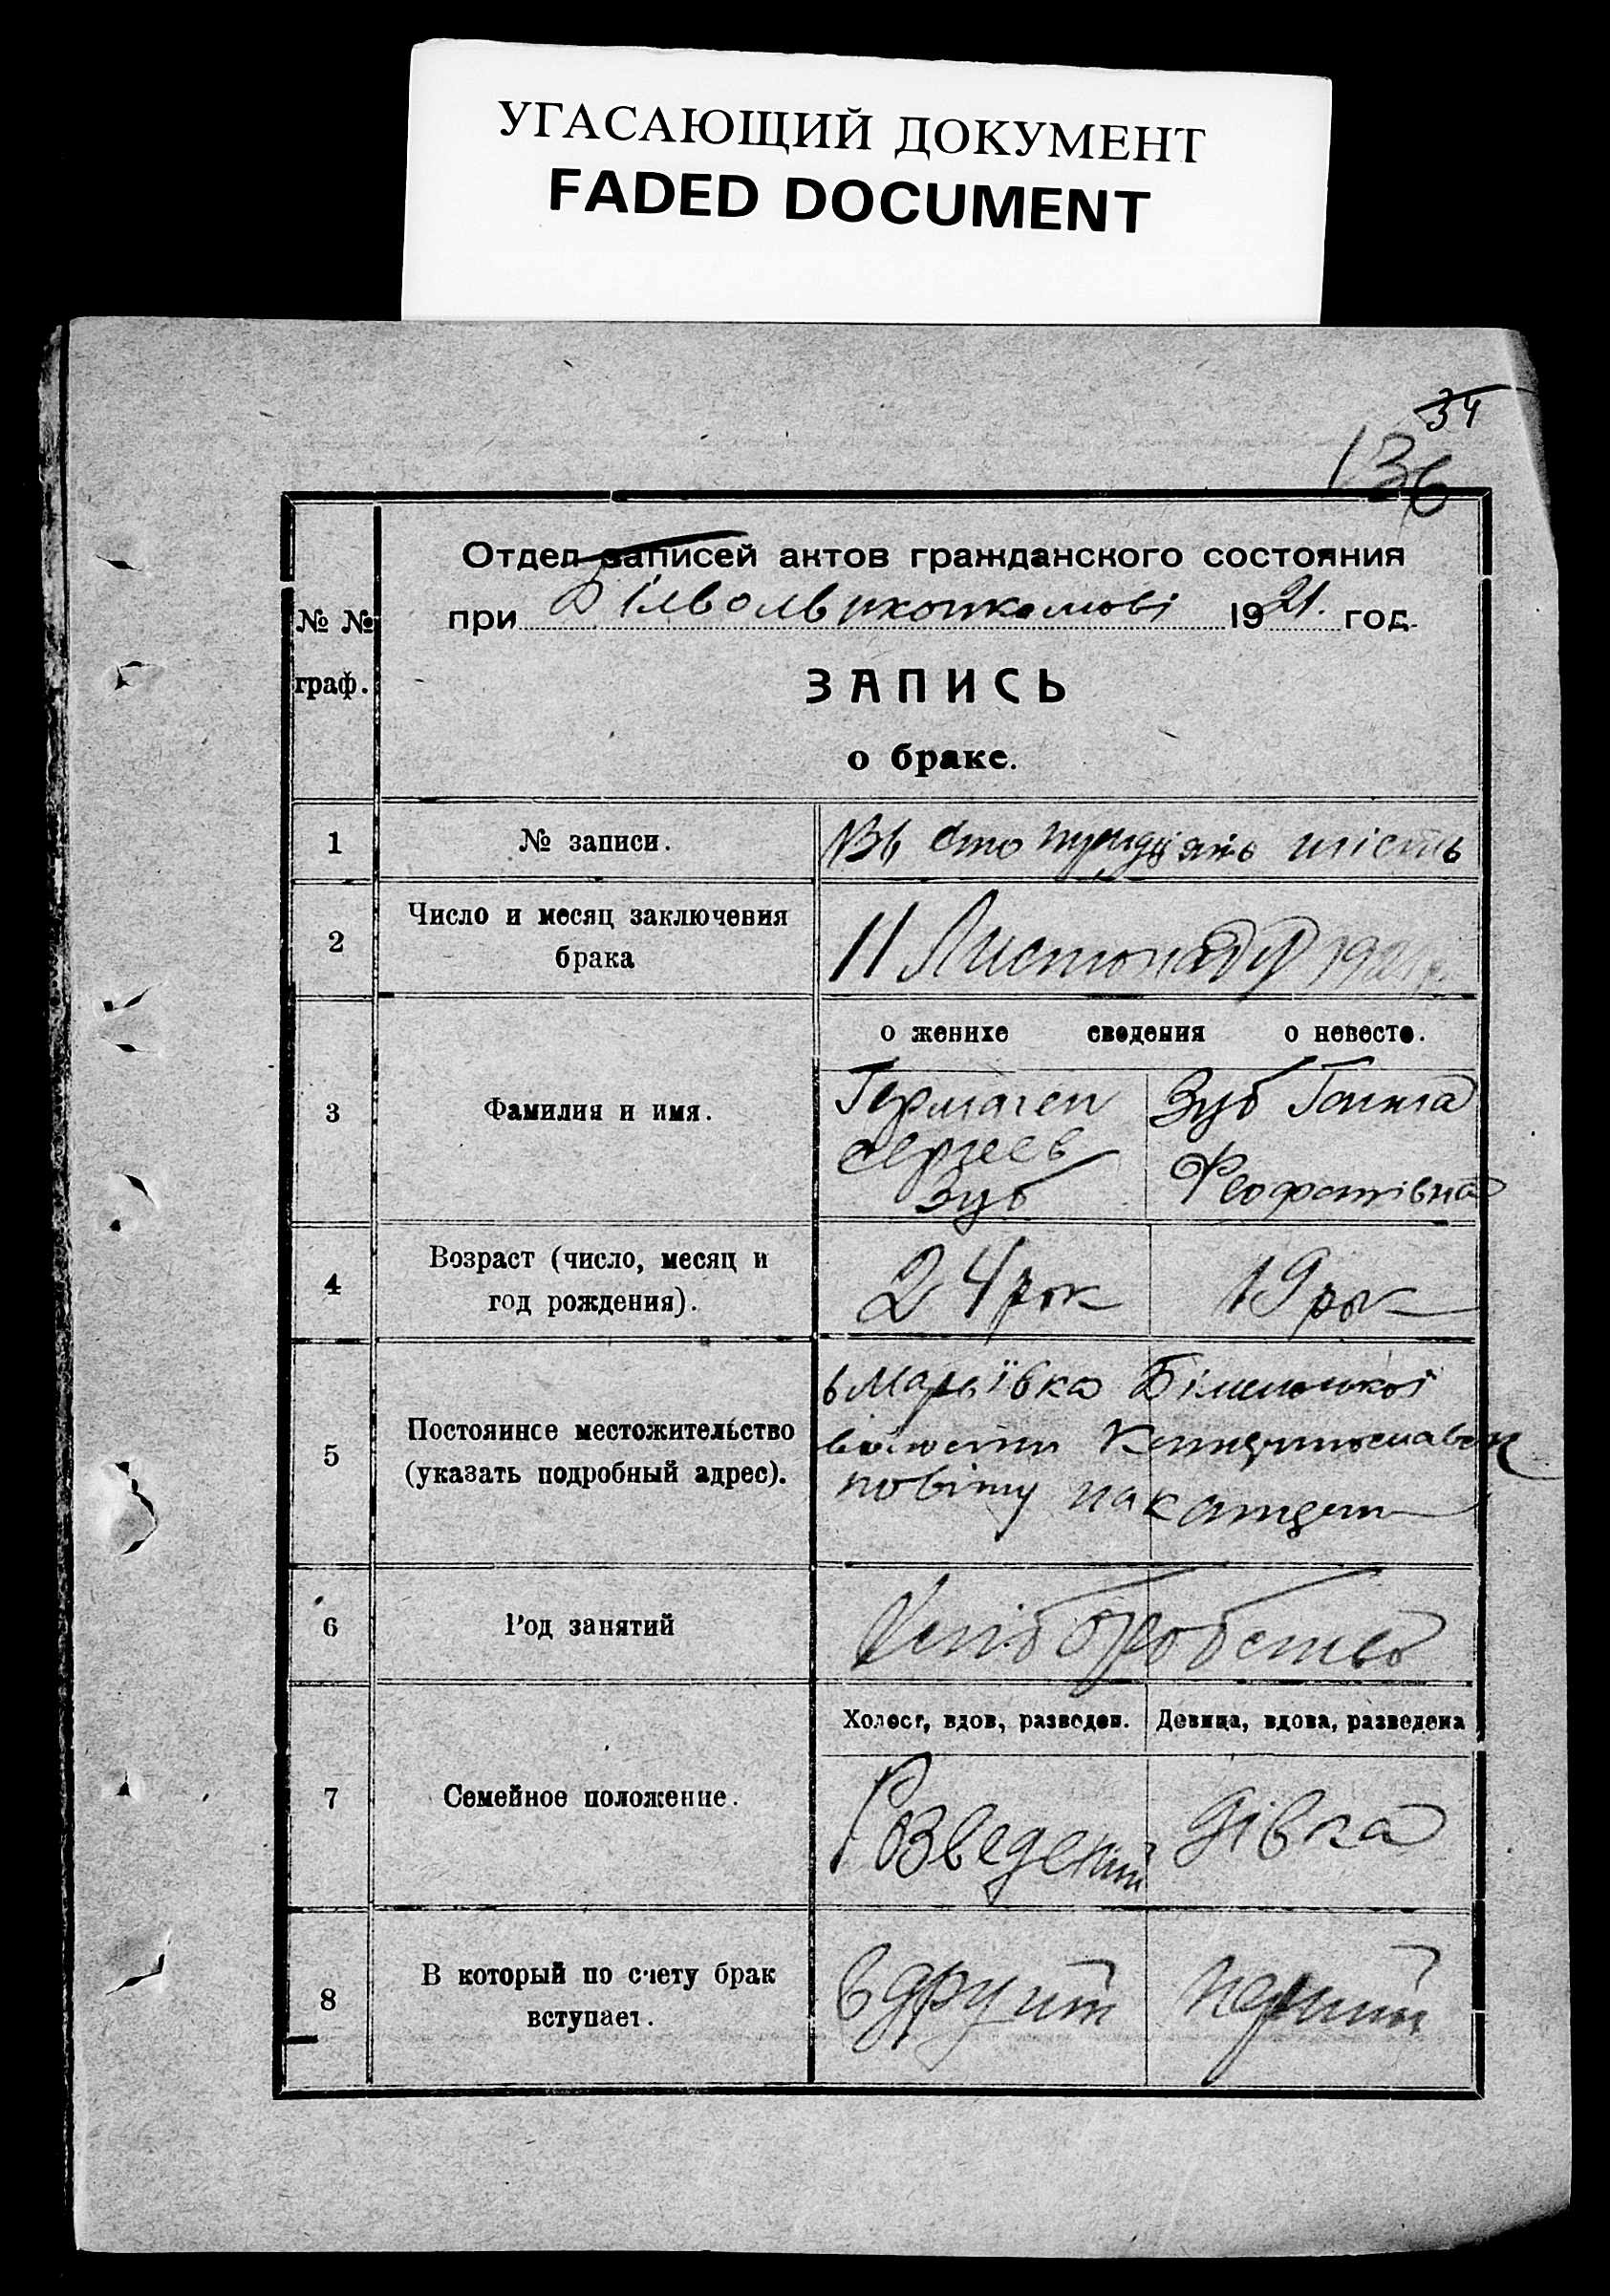 УГАСАЮЩИЙ ДОКУМЕНТ
FADED DOCUMENT
34
136
Отдел записей актов гражданского состояния
при 1921. год.
№ №
граф.
ЗАПИСЬ
о браке.
1 № записи. сто шість
2 Число и месяц заключения
брака
11 Листопаду 1921 р.
о женихе сведения о невесте.
3 Фамилия и имя.
Зуб Ганна
Сергеев
Зуб
4 Возраст (число, месяц и
год рождения).
24 рок 19 рок
5 Постоянное местожительство
(указать подробный адрес).
повіту
6 Род занятий
Хліборобство
Холост, вдов, разведен. Девица, вдова, разведена
7 Семейное положение.
Розведений дівка
8 В который по счету брак
вступает.
в другий перший